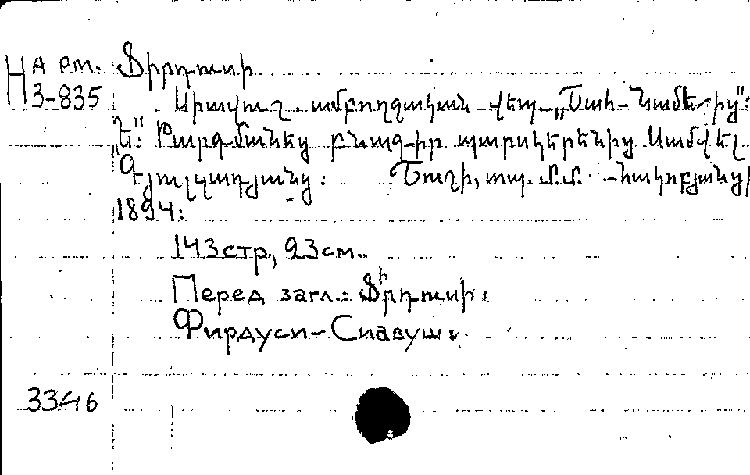 На рт. Ֆիրդուսի
З-835 Սիավուշ ամբողջական վէպ „Շահ-Նամէ-ից":
Թարգմանեց բնագիր պարսկերէնից Սամվէլ
Գյուլզադյանց: Շուշի, տպ. Մ.Մ. Հակոբյանցի
1894:
143стр, 23см.
Перед загл.: Ֆիրդուսի:
Фирдуси-Сиавуш.
3346